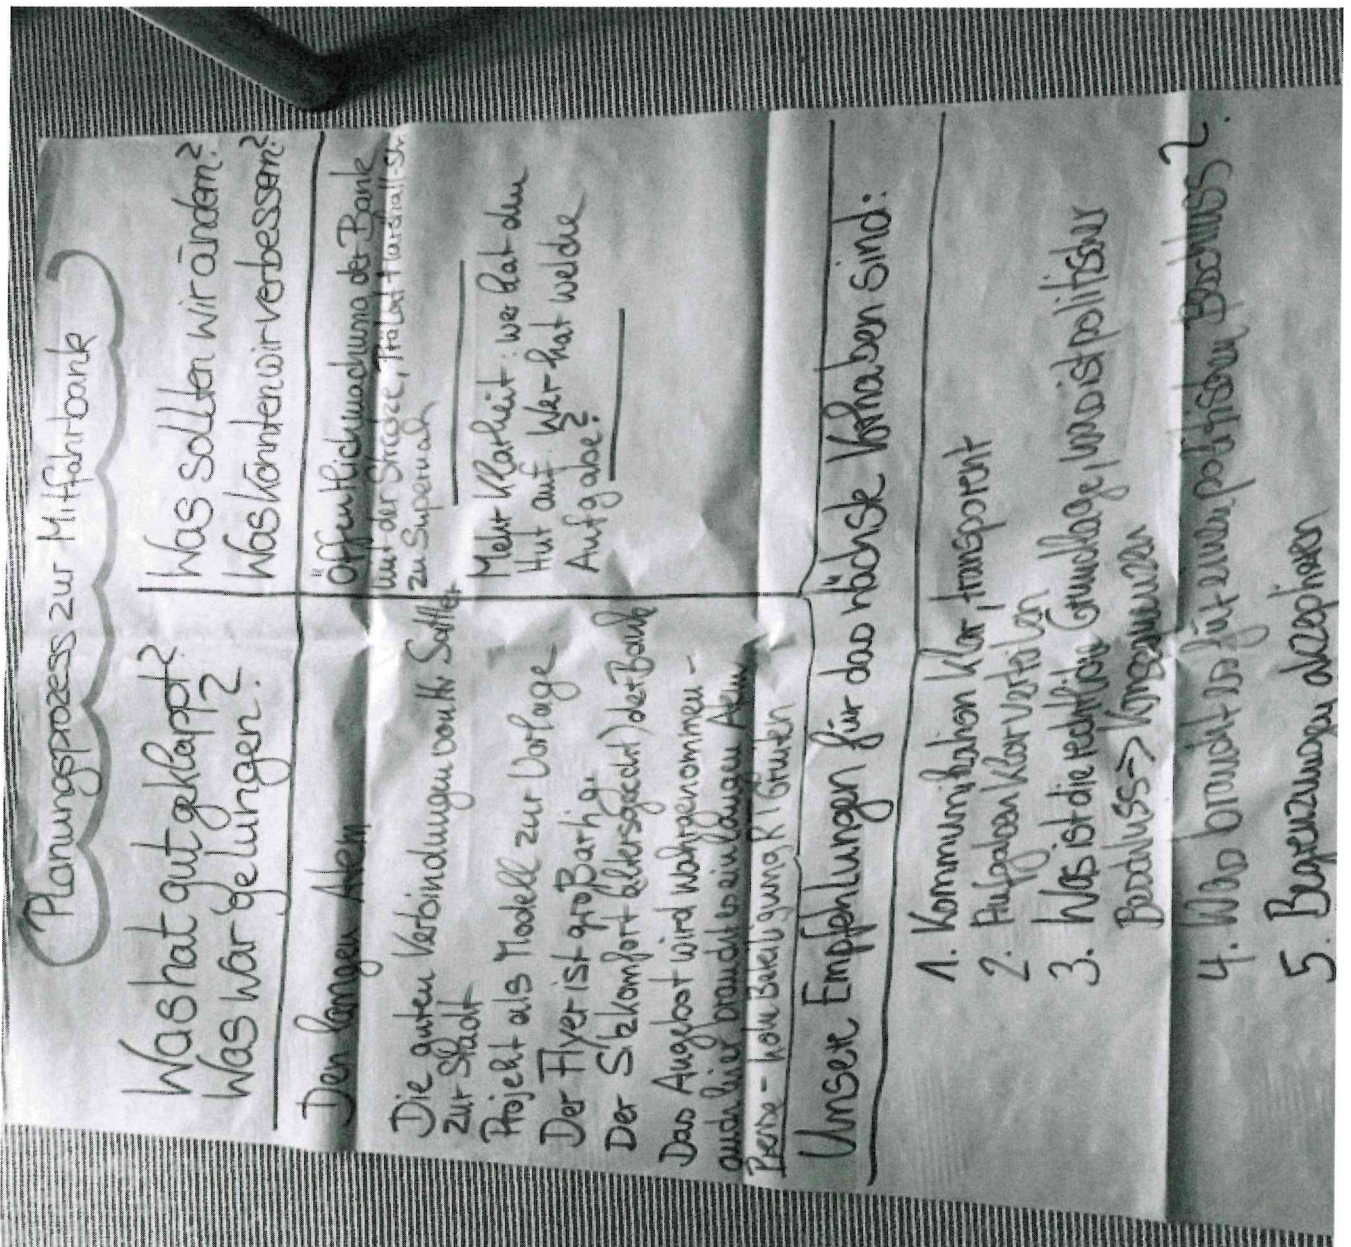 Planungsprozess zur Mitfahrbank
Was hat gut geklappt?
Was war gelungen?
Den langen Atem
Die guten Verbindungen von Hr Sattler
zur Stadt
Projekt als Modell zur Vorlage
Der Flyer ist großartig
Der Sitzkomfort (altersgerecht) der Bank
Das Angebot wird wahrgenommen -
auch hier braucht es ein langen Atem
Presse - hohe Beteiligung
Was sollten wir ändern?
Was könnten wir verbessern?
Öffentlichmachung der Bank
auf der Straße,
zu Supernah
Mehr Klarheit: wer hat den
Hut auf Wer hat welche
Aufgabe?
Unsere Empfehlungen für das nächste Vorhaben sind:
1. Kommunikation klar, transparent
2. Aufgaben klar verteilen
3. Was ist die rechtliche Grundlage, was ist politischer
Beschluss -> Konsequenzen
4. Was braucht es für einen politischen Beschluss?
5. Begrenzungen akzeptieren